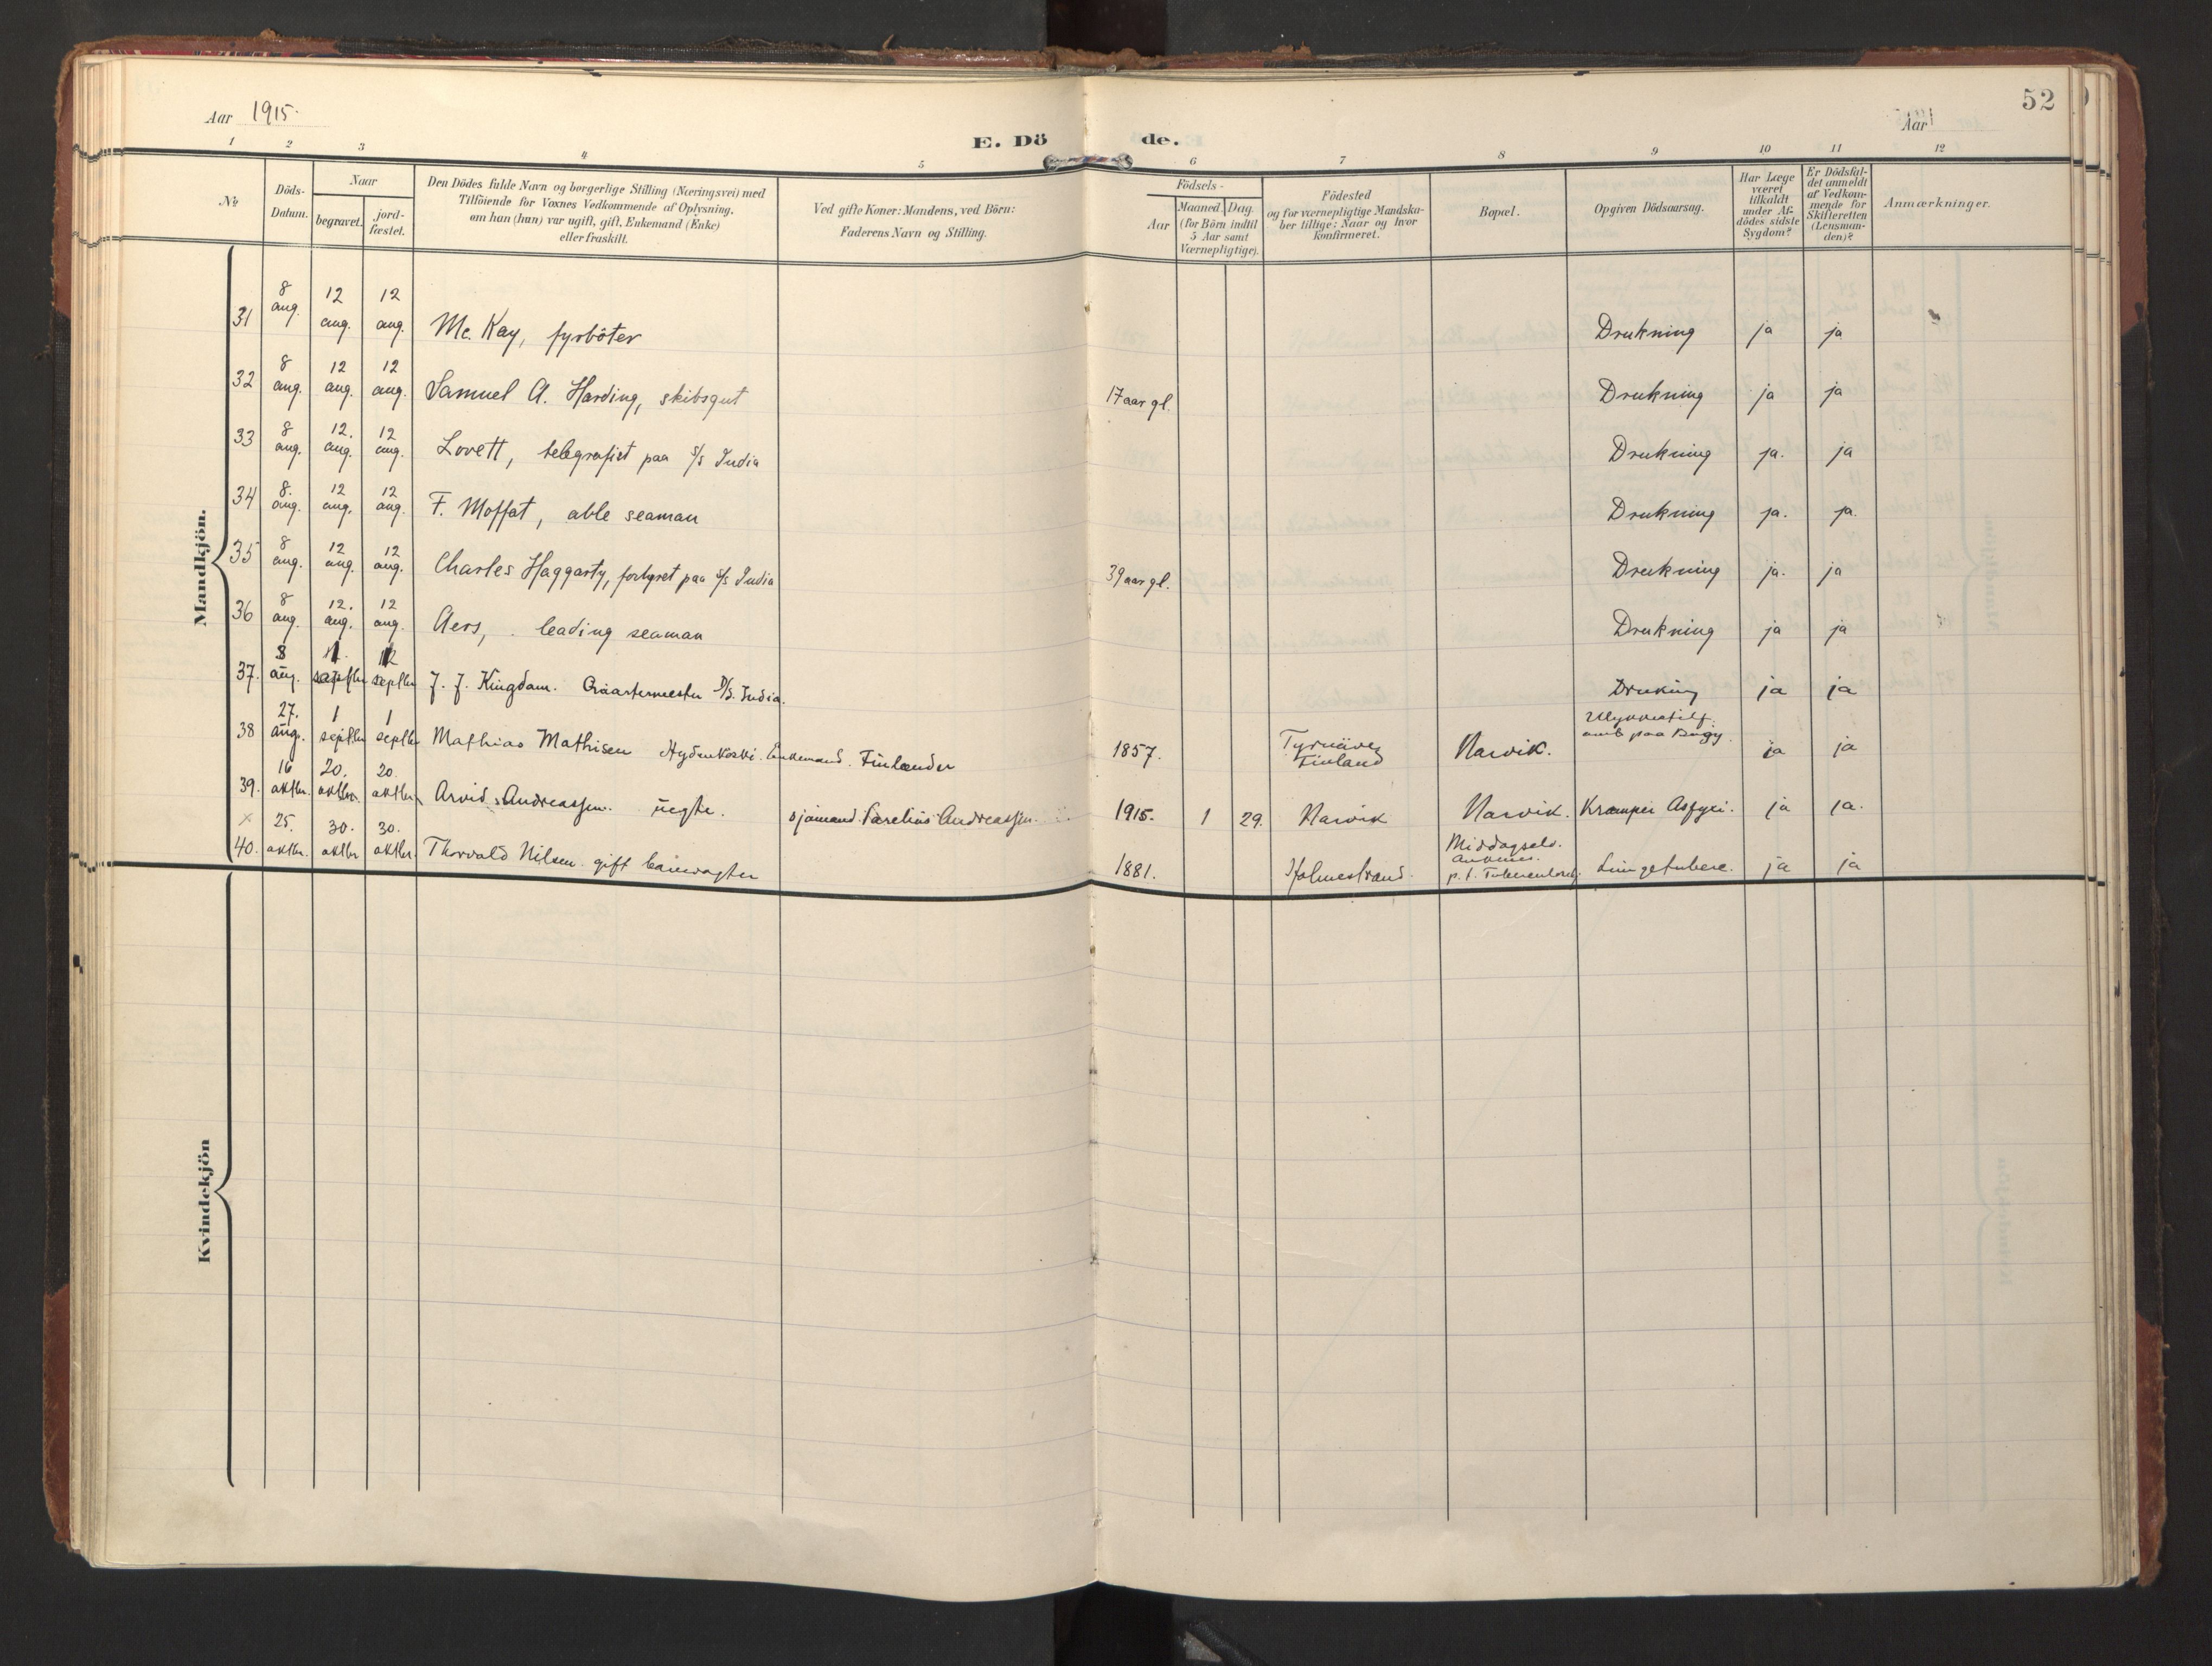 52
Aar 1915.
Aar
E. Dö de.
1 2 3 4 5 6 7 8 9 10 11 12
№
Döds-
Datum.
Naar
begravet.
jord-
fæstet.
Den Dödes fulde Navn og borgerlige Stilling (Næringsvei) med
Tilföiende for Voxnes Vedkommende af Oplysning,
om han (hun) var ugift, gift, Enkemand (Enke)
eller fraskilt.
Ved gifte Koner: Mandens, ved Börn:
Faderens Navn og Stilling.
Födsels-
Aar
Maaned. Dag.
(for Börn indtil
5 Aar samt
Værnepligtige).
Födested
og for værnepligtige Mandska-
ber tillige: Naar og hvor
konfirmeret.
Bopæl.
Opgiven Dödsaarsag.
Har Læge
været
tilkaldt
under Af-
dödes sidste
Sygdom?
Er Dödsfal-
det anmeldt
af Vedkom-
mende for
Skifteretten
(Lensman-
den)?
Anmærkninger.
Mandkjön.
31 8 aug. 12 aug. 12 aug. Mc. Kay, fyrböter Drukning ja ja
32 8 aug. 12 aug. 12 aug. Samuel A. Harding, skibsgut 17 aar gl. Drukning ja ja
33 8 aug. 12. aug. 12 aug. Lovett, telegrafist paa s/s India Drukning ja. ja
34 8. aug. 12 aug. 12 aug. F. Moffat, able seaman Drukning ja. ja.
35 8 aug. 12 aug. 12 aug. Charles Haggarty, paa s/s India 39 aar gl. Drukning ja. ja
36 8 aug. 12. aug. 12 aug. Aers, leading seaman Drukning ja ja
37. 8 aug. septbr septbr J. J. Kingdam. D/S. India. ja ja
38 27. aug. 1 septbr 1 septbr Mathias Mathisen Enkemand. Finlænder 1857. Finland Narvik. paa ja ja
39. 16 oktbr. 20. oktbr. 20. oktbr. Arvid Andreassen. uegte. sjömand. Andreassen. 1915. 1 29. Narvik Narvik. Kramper ja ja.
40. 25. oktbr. 30. oktbr 30. oktbr. Thorvald Nilsen. gift banevogter 1881. Holmestrand. p. t. ja ja
Kvindekjön